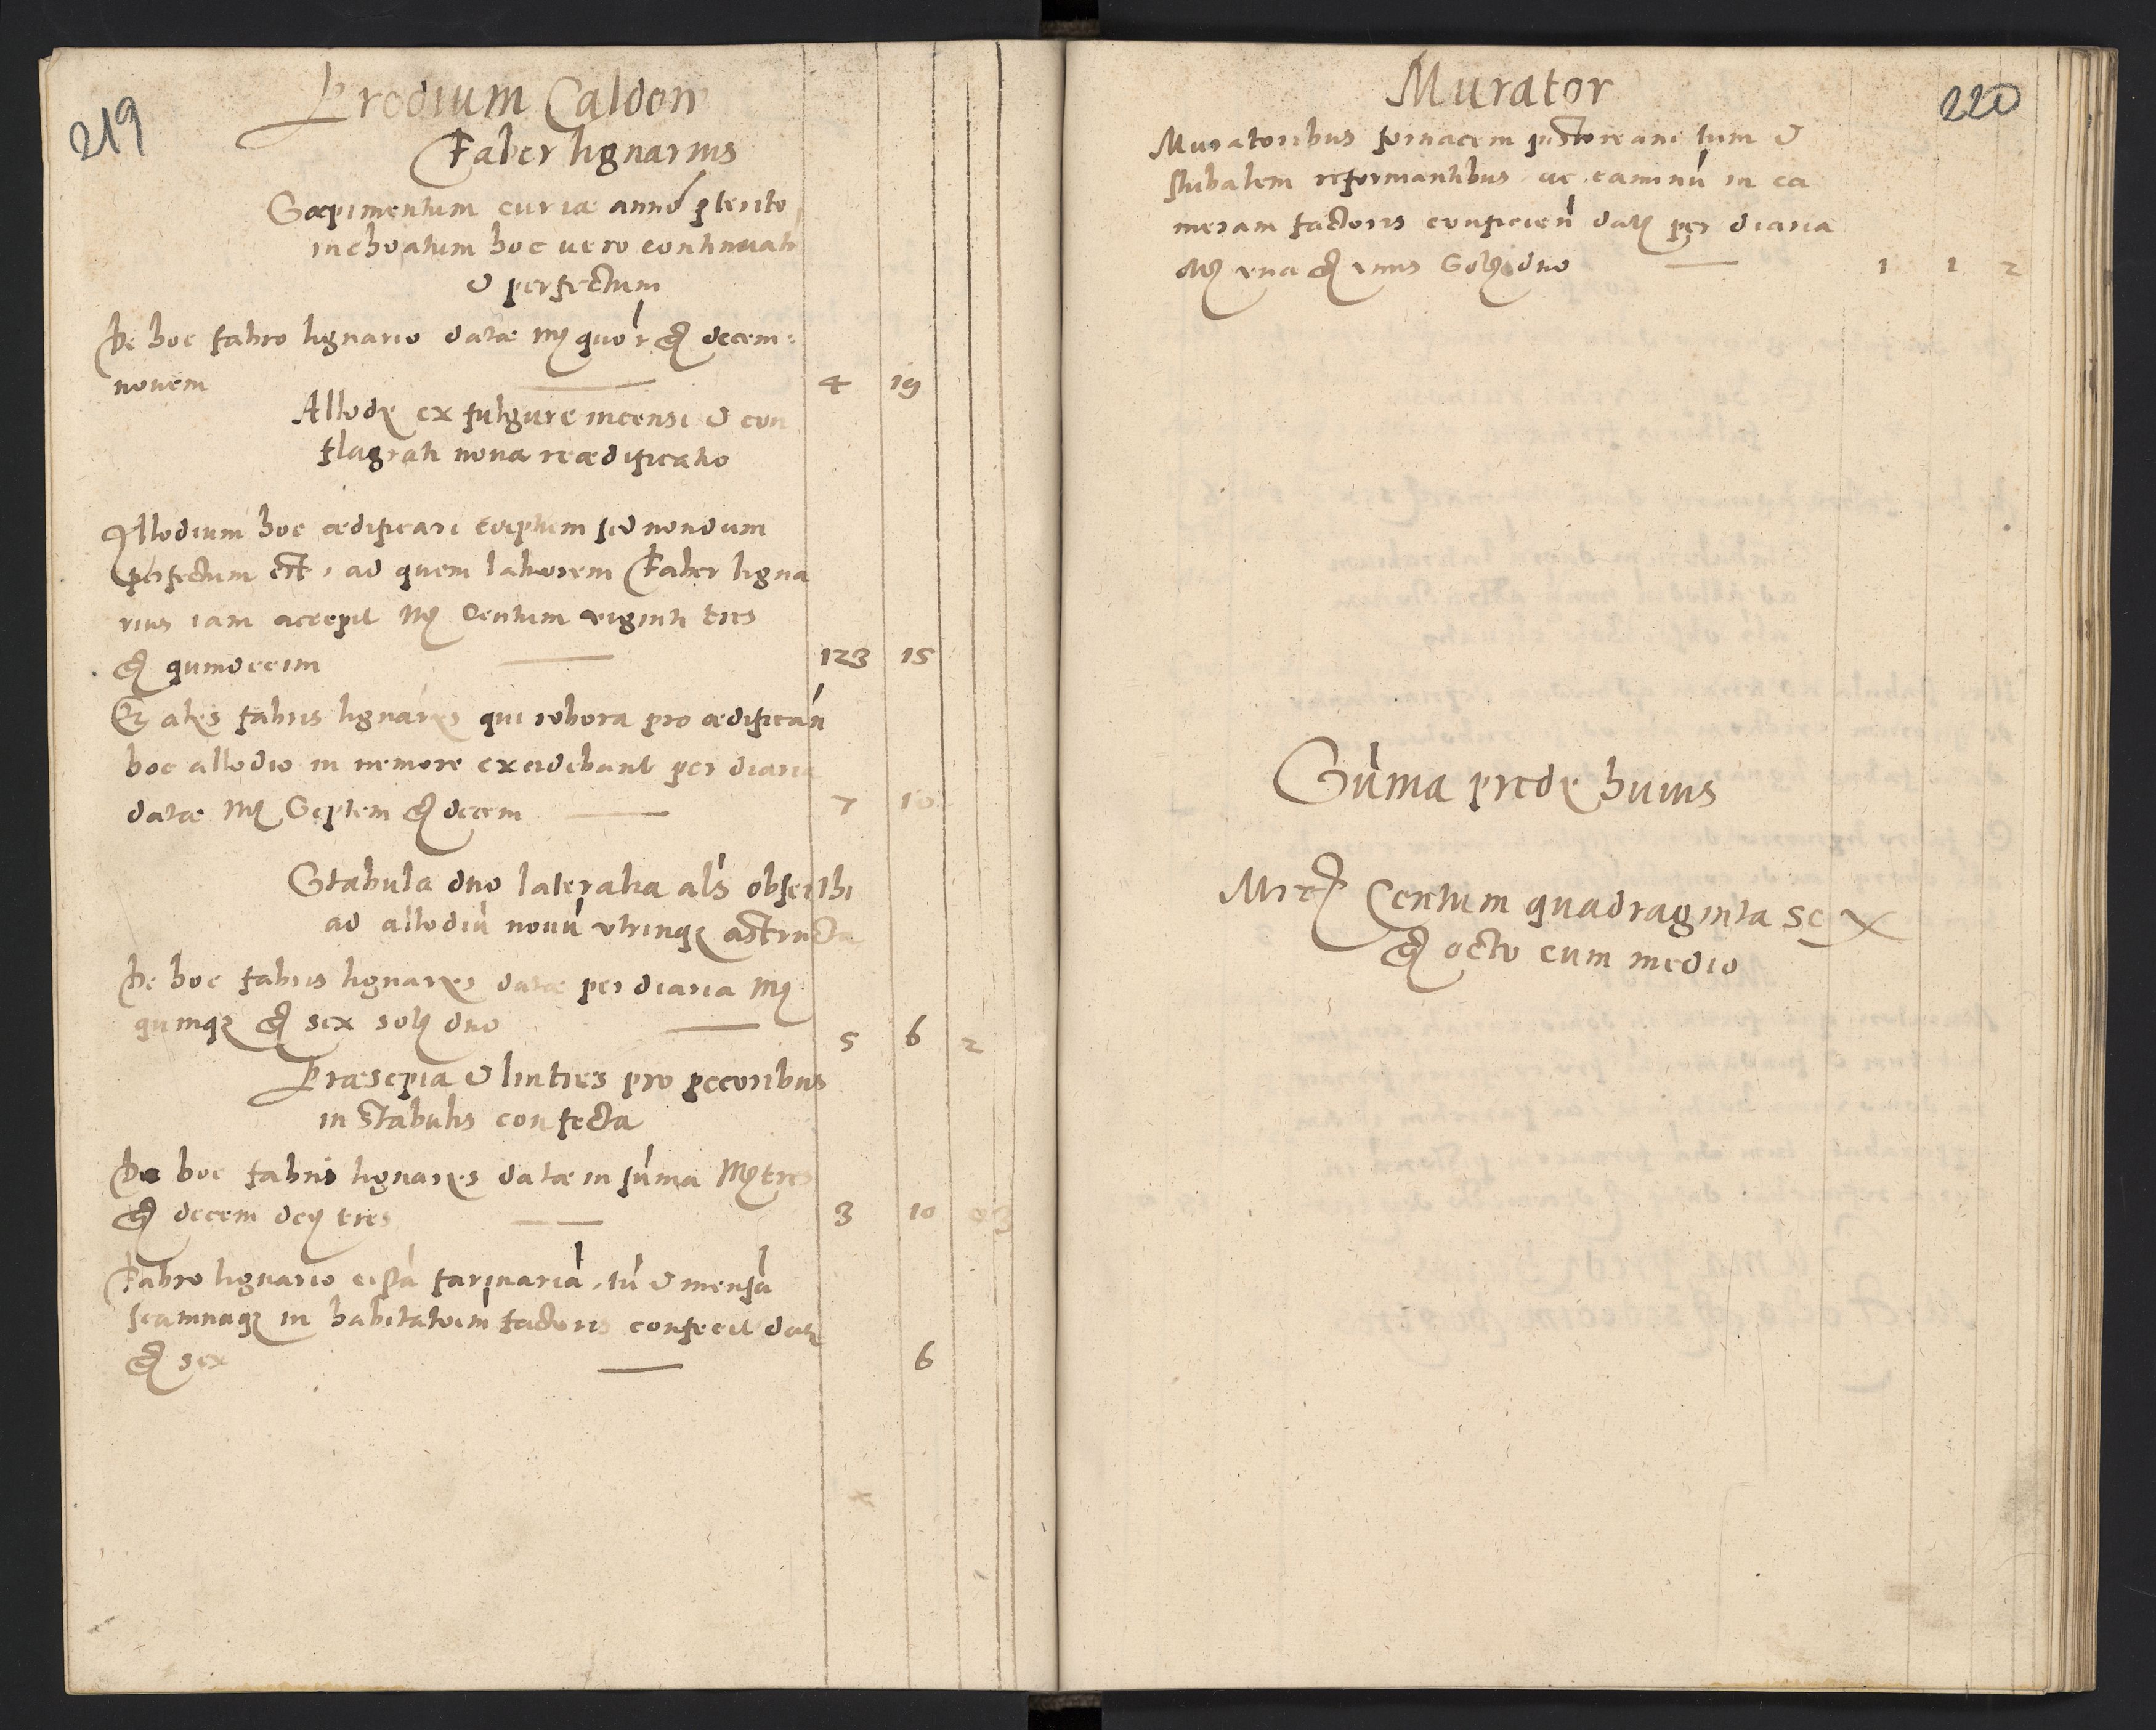 219
Predium Caldon
Faber lignarius
Sæpimentum curiæ anno pterito
inchoatum hoc vero continuat
& perfectum
De hoc fabro lignario datæ Mr quor gr decem:
novem 4 19
Allodij ex fulgure incensi & con
flagrati nova reædificatio
Allodium hoc ædificari cœptum sed nondum
perfectum est, ad quem laborem Faber ligna
rius iam accepit Mr Centum viginti tres
gr quindecim 123 15
Et alijs fabris lignarijs qui robora pro ædifican
hoc allodio in nemore excidebant per diaria
datæ Mr Septem gr decem 7 10
Stabula duo lateralia als obserthi
ad allodiu novu utrinq astructa
De hoc fabris lignarijs datæ per diaria Mr
quinq gr sex solid duo 5 6 2
Præsepia & lintres pro pecoribus
in stabulis confecta
De hoc fabris lignarijs datæ in suma Mr tres
gr decem den tres 3 10 3
Fabro lignario cista farinaria, tu & mensa
scamnaq in habitatoim factoris confecit dati
gr sex 6
220
Murator
Muratoribus fornacem pistoream tum &
stubalem reformantibus ac caminu in ca
meram factoris conficien dati per diaria
Mr una gr unus Solid duo 1 1 2
Suma predij huius
Mrc Centum quadraginta sex
gr octo cum medio